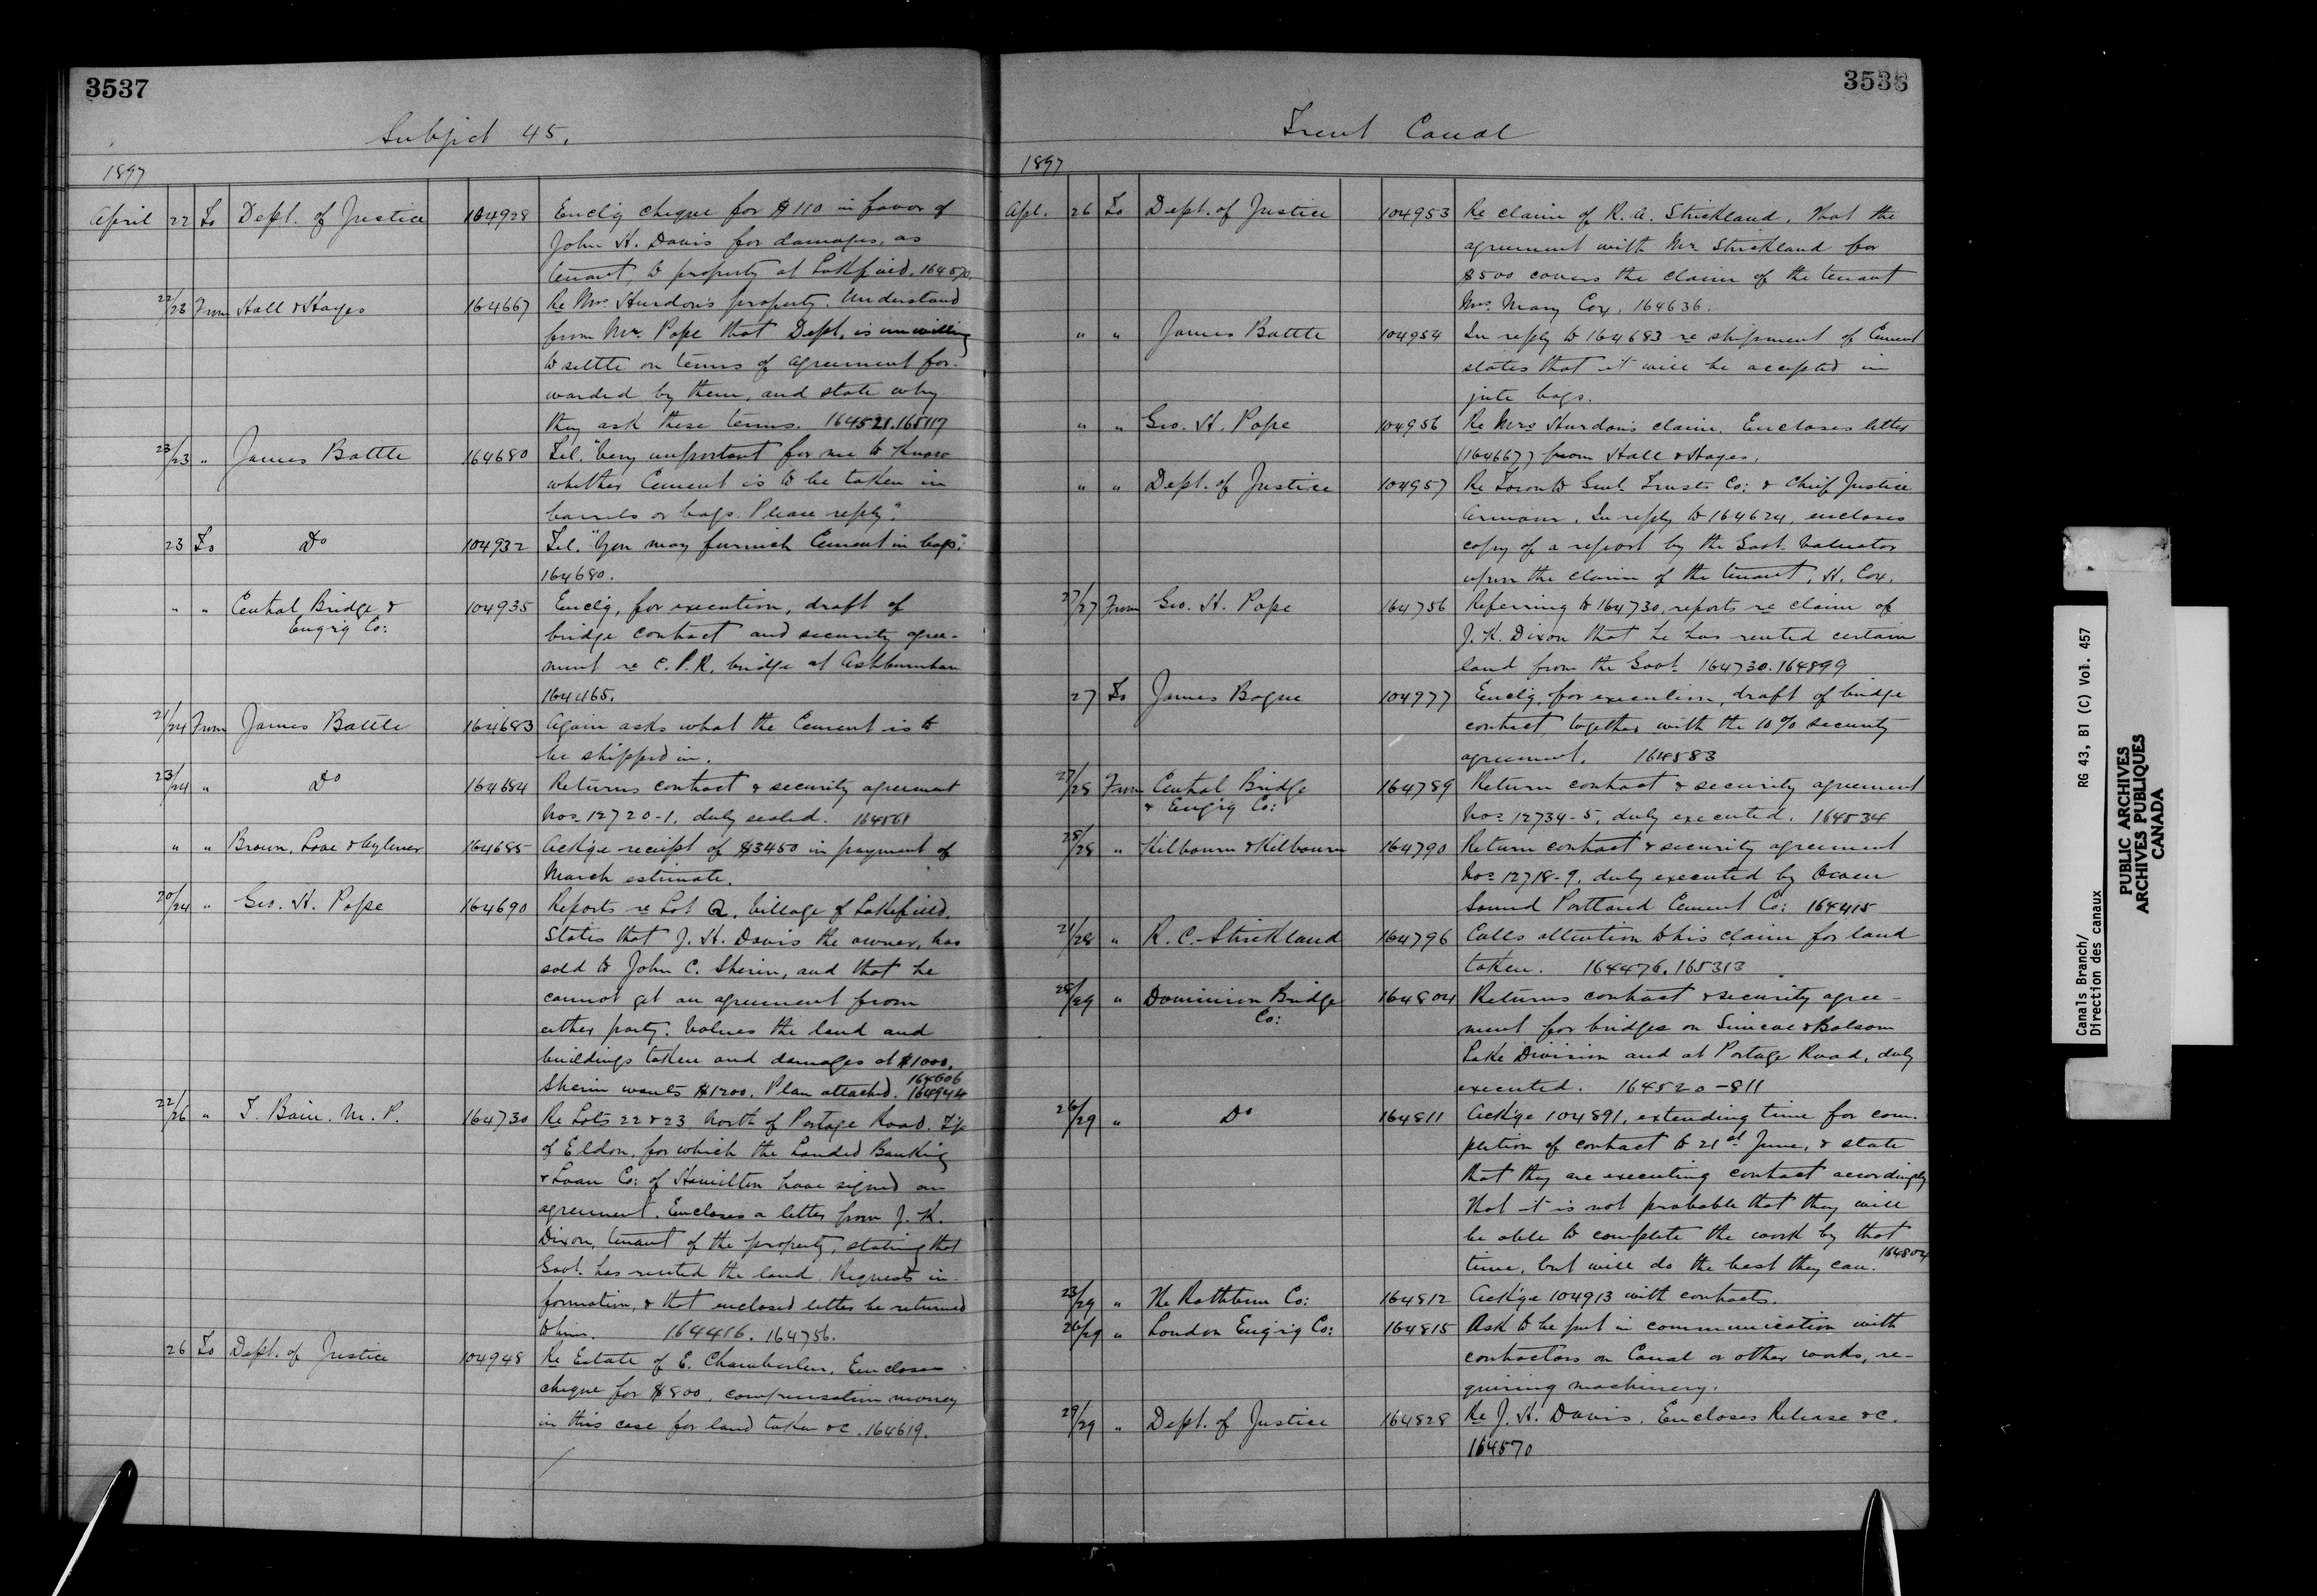 3537
Subject 45.
1897
April 22 To Dept. of Justice 104928 Enclg cheque for $110 in favor of
John H. Davis for damages, as
tenant, to property at Lakefield. 164570.
22/23 From Hall & Hayes 164667 Re Mrs. Hurdon's property. Understand
from Mr. Pope that Dept. is unwilling
to settle on terms of agreement for-
warded by them, and state why
they ask these terms. 164521. 165117
23/23 " James Battle 164680 Tel. "Very important for me to know
whether Cement is to be taken in
barrels or bags. Please reply".
23 To Do 104932 Tel. "You may furnish Cement in bags".
164680.
" " Central Bridge & 104935 Enclg, for execution, draft of
Engrg Co: bridge contract and security agree-
ment re C.P.R. bridge at Ashburnham
164465.
21/24 From James Battle 164683 Again asks what the Cement is to
be shipped in.
23/24 " Do 164684 Returns contract & security agreement
Nos. 12720-1, duly sealed. 164561
" " Brown, Love & Aylmer 164685 Ackge receipt of $3450 in payment of
March estimate.
20/24 " Geo. H. Pope 164690 Reports re Lot Q. Village of Lakefield.
States that J. H. Davis the owner, has
sold to John C. Sherin, and that he
cannot get an agreement from
either party. Values the land and
buildings taken and damages at $1000.
164606
Sherin wants $1200. Plan attached. 164944
22/26 " T. Bain. M.P. 164730 Re Lots 22 & 23 North of Portage Road. T'p
of Eldon, for which the Landed Banking
& Loan Co: of Hamilton have signed an
agreement. Encloses a letter from J. K.
Dixon, tenant of the property, stating that
Govt. has rented the land. Requests in-
formation, & that enclosed letter be returned
to him. 164416. 164756.
26 To Dept. of Justice 104948 Re Estate of E. Chamberlen, Encloses
cheque for $800, compensation money
in this case for land taken &c. 164619.
3538
Trent Canal
1897
Apl. 26 To Dept. of Justice 104953 Re claim of R. A. Strickland. That the
agreement with Mr. Strickland for
$500 covers the claim of the tenant
Mrs. Mary Cox. 164636.
" " James Battle 104954 In reply to 164683 re shipment of Cement
states that it will be accepted in
jute bags.
" " Geo. H. Pope 104956 Re Mrs Hurdon's claim. Encloses letter
(164667) from Hall & Hayes.
" " Dept. of Justice 104957 Re Toronto Genl. Trusts Co: & Chief Justice
Armour. In reply to 164624, encloses
copy of a report by the Govt. Valuator
upon the claim of the tenant, H. Cox.
27/27 From Geo. H. Pope 164756 Referring to 164730, reports re claim of
J. K. Dixon that he has rented certain
land from the Govt. 164730. 164899
27 To James Bogue 104977 Enclg, for execution, draft of bridge
contract, together with the 10% security
agreement. 164583
27/28 From Central Bridge 164789 Return contract & security agreement
& Engrg Co: Nos. 12734-5, duly executed. 164534
28/28 " Kilbourn & Kilbourn 164790 Return contract & security agreement
Nos. 12718-9, duly executed by Owen
Sound Portland Cement Co: 164415
21/28 " R. C. Strickland 164796 Calls attention to his claim for land
taken. 164476. 165313
28/29 " Dominion Bridge 164804 Returns contract & security agree-
Co: ment for bridges on Simcoe & Balsam
Lake Division and at Portage Road, duly
executed. 164520-811
26/29 " Do 164811 Ackge 104891, extending time for com-
pletion of contract to 21st June, & state
that they are executing contract accordingly
That it is not probable that they will
be able to complete the work by that
time, but will do the best they can. 164804
23/29 " The Rathbun Co: 164812 Ackge 104913 with contracts.
26/29 " London Engrg Co: 164815 Ask to be put in communication with
contractors on Canal or other works, re-
quiring machinery.
29/29 " Dept. of Justice 164828 Re J. H. Davis. Encloses Release &c.
164570
Canals Branch/ RG 43, B1 (C) Vol. 457
Direction des canaux
PUBLIC ARCHIVES
ARCHIVES PUBLIQUES
CANADA